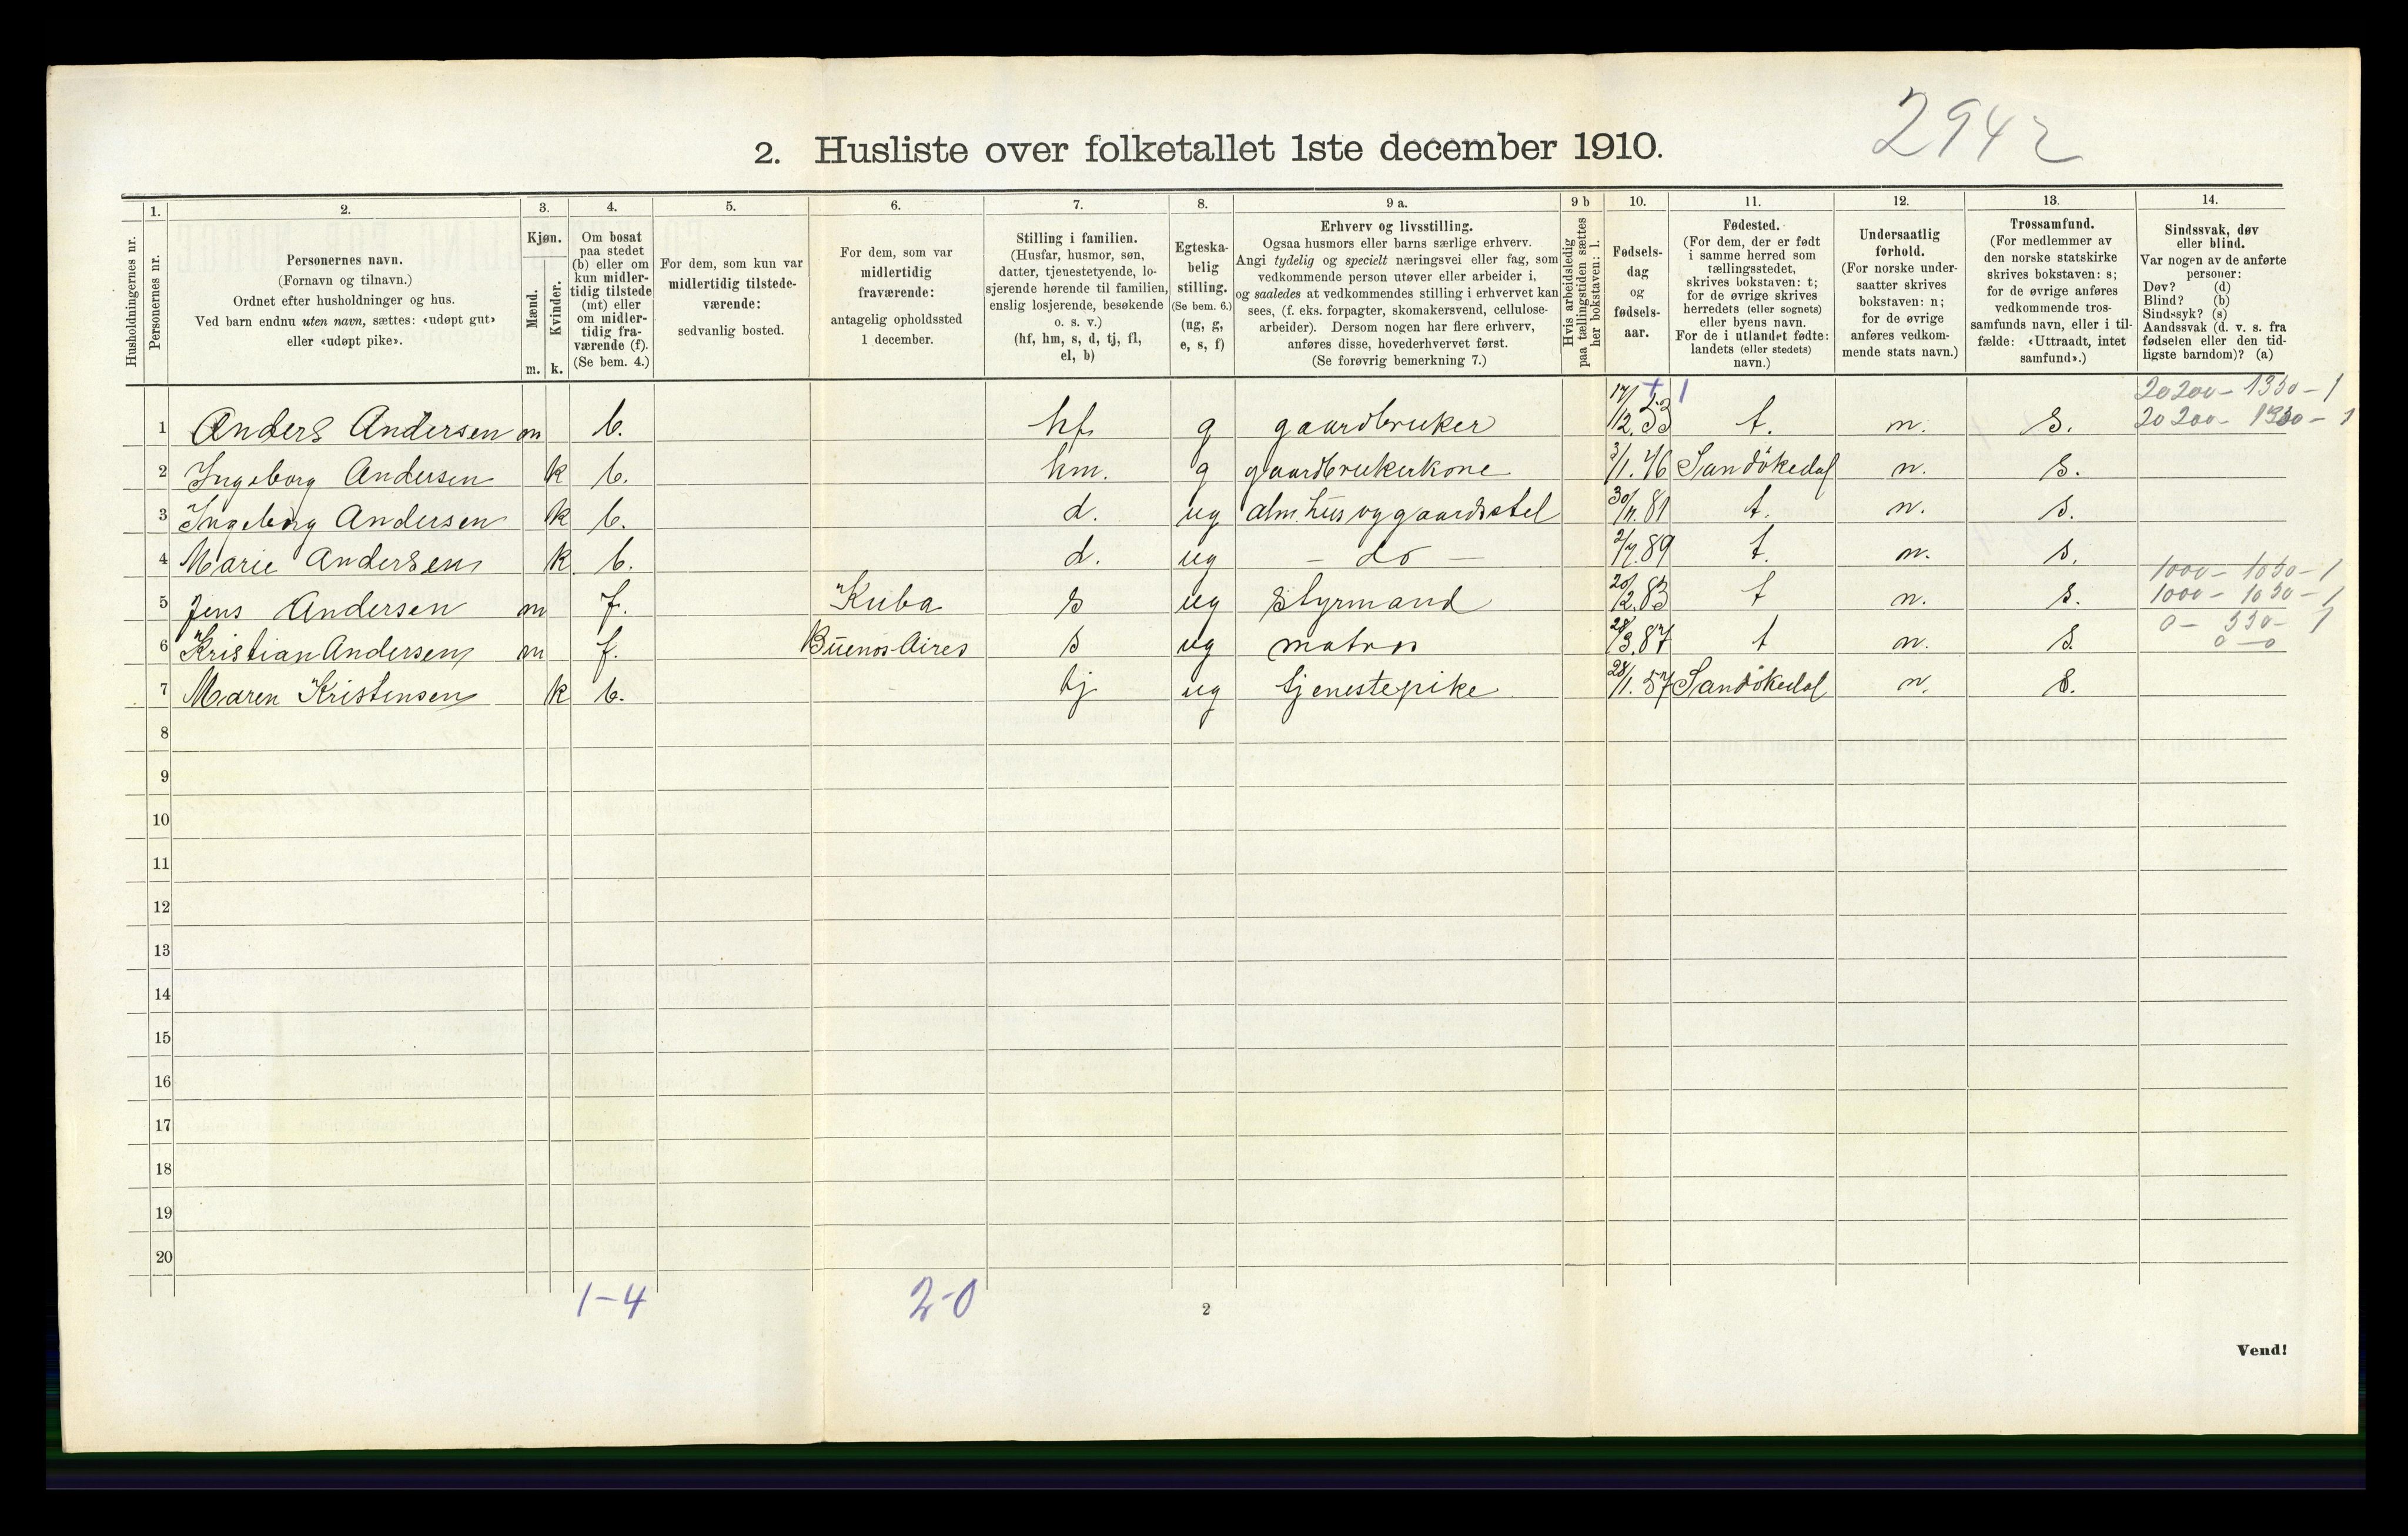 2942
2. Husliste over folketallet 1ste december 1910.
Husholdningernes nr.
1. Personernes nr.
2. Personernes navn.
(Fornavn og tilnavn.)
Ordnet efter husholdninger og hus.
Ved barn endnu uten navn, sættes: «udøpt gut»
eller «udøpt pike».
3. Kjøn.
Mænd. m.
Kvinder. k.
4. Om bosat
paa stedet
(b) eller om
kun midler-
tidig tilstede
(mt) eller
om midler-
tidig fra-
værende (f).
(Se bem. 4.)
5. For dem, som kun var
midlertidig tilstede-
værende:
sedvanlig bosted.
6. For dem, som var
midlertidig
fraværende:
antagelig opholdssted
1 december.
7. Stilling i familien.
(Husfar, husmor, søn,
datter, tjenestetyende, lo-
sjerende hørende til familien,
enslig losjerende, besøkende
o. s. v.)
(hf, hm, s, d, tj, fl,
el, b)
8. Egteska-
belig
stilling.
(Se bem. 6.)
(ug, g,
e, s, f)
9 a. Erhverv og livsstilling.
Ogsaa husmors eller barns særlige erhverv.
Angi tydelig og specielt næringsvei eller fag, som
vedkommende person utøver eller arbeider i,
og saaledes at vedkommendes stilling i erhvervet kan
sees, (f. eks. forpagter, skomakersvend, cellulose-
arbeider). Dersom nogen har flere erhverv,
anføres disse, hovederhvervet først.
(Se forøvrig bemerkning 7.)
9 b Hvis arbeidsledig
paa tællingstiden sættes
her bokstaven: l.
10. Fødsels-
dag
og
fødsels-
aar.
11. Fødested.
(For dem, der er født
i samme herred som
tællingsstedet,
skrives bokstaven: t;
for de øvrige skrives
herredets (eller sognets)
eller byens navn.
For de i utlandet fødte:
landets (eller stedets)
navn.)
12. Undersaatlig
forhold.
(For norske under-
saatter skrives
bokstaven: n;
for de øvrige
anføres vedkom-
mende stats navn.)
13. Trossamfund.
(For medlemmer av
den norske statskirke
skrives bokstaven: s;
for de øvrige anføres
vedkommende tros-
samfunds navn, eller i til-
fælde: «Uttraadt, intet
samfund».)
14. Sindssvak, døv
eller blind.
Var nogen av de anførte
personer:
Døv? (d)
Blind? (b)
Sindssyk? (s)
Aandssvak (d. v. s. fra
fødselen eller den tid-
ligste barndom)? (a)
20200 - 1330 - 1
1 Anders Andersen m b. hf g gaardbruker 17/12.53 t. n. s. 20200 - 1330 - 1
2 Ingeborg Andersen k b. hm. g gaardbrukerkone 3/1.46 Sandökedal n. s.
3 Ingeborg Andersen k b. d. ug alm. hus og gaardsstel 30/11.81 t. n. s.
4 Marie Andersen k b. d. ug - do - 2/7.89 t. n. s.
1000 - 1030 - 1
5 Jens Andersen m f. Kuba s ug styrmand 20/12.83 t n. s. 1000 - 1030 - 1
0 - 530 - 1
6 Kristian Andersen m f. Buenos-Aires s ug matros 28/3.87 t n. s. 0 - 0
7 Maren Kristensen k b. tj ug tjenestepike 28/1.57 Sandökedal n. s.
8
9
10
11
12
13
14
15
16
17
18
19
20
1-4 2-0
2
Vend!